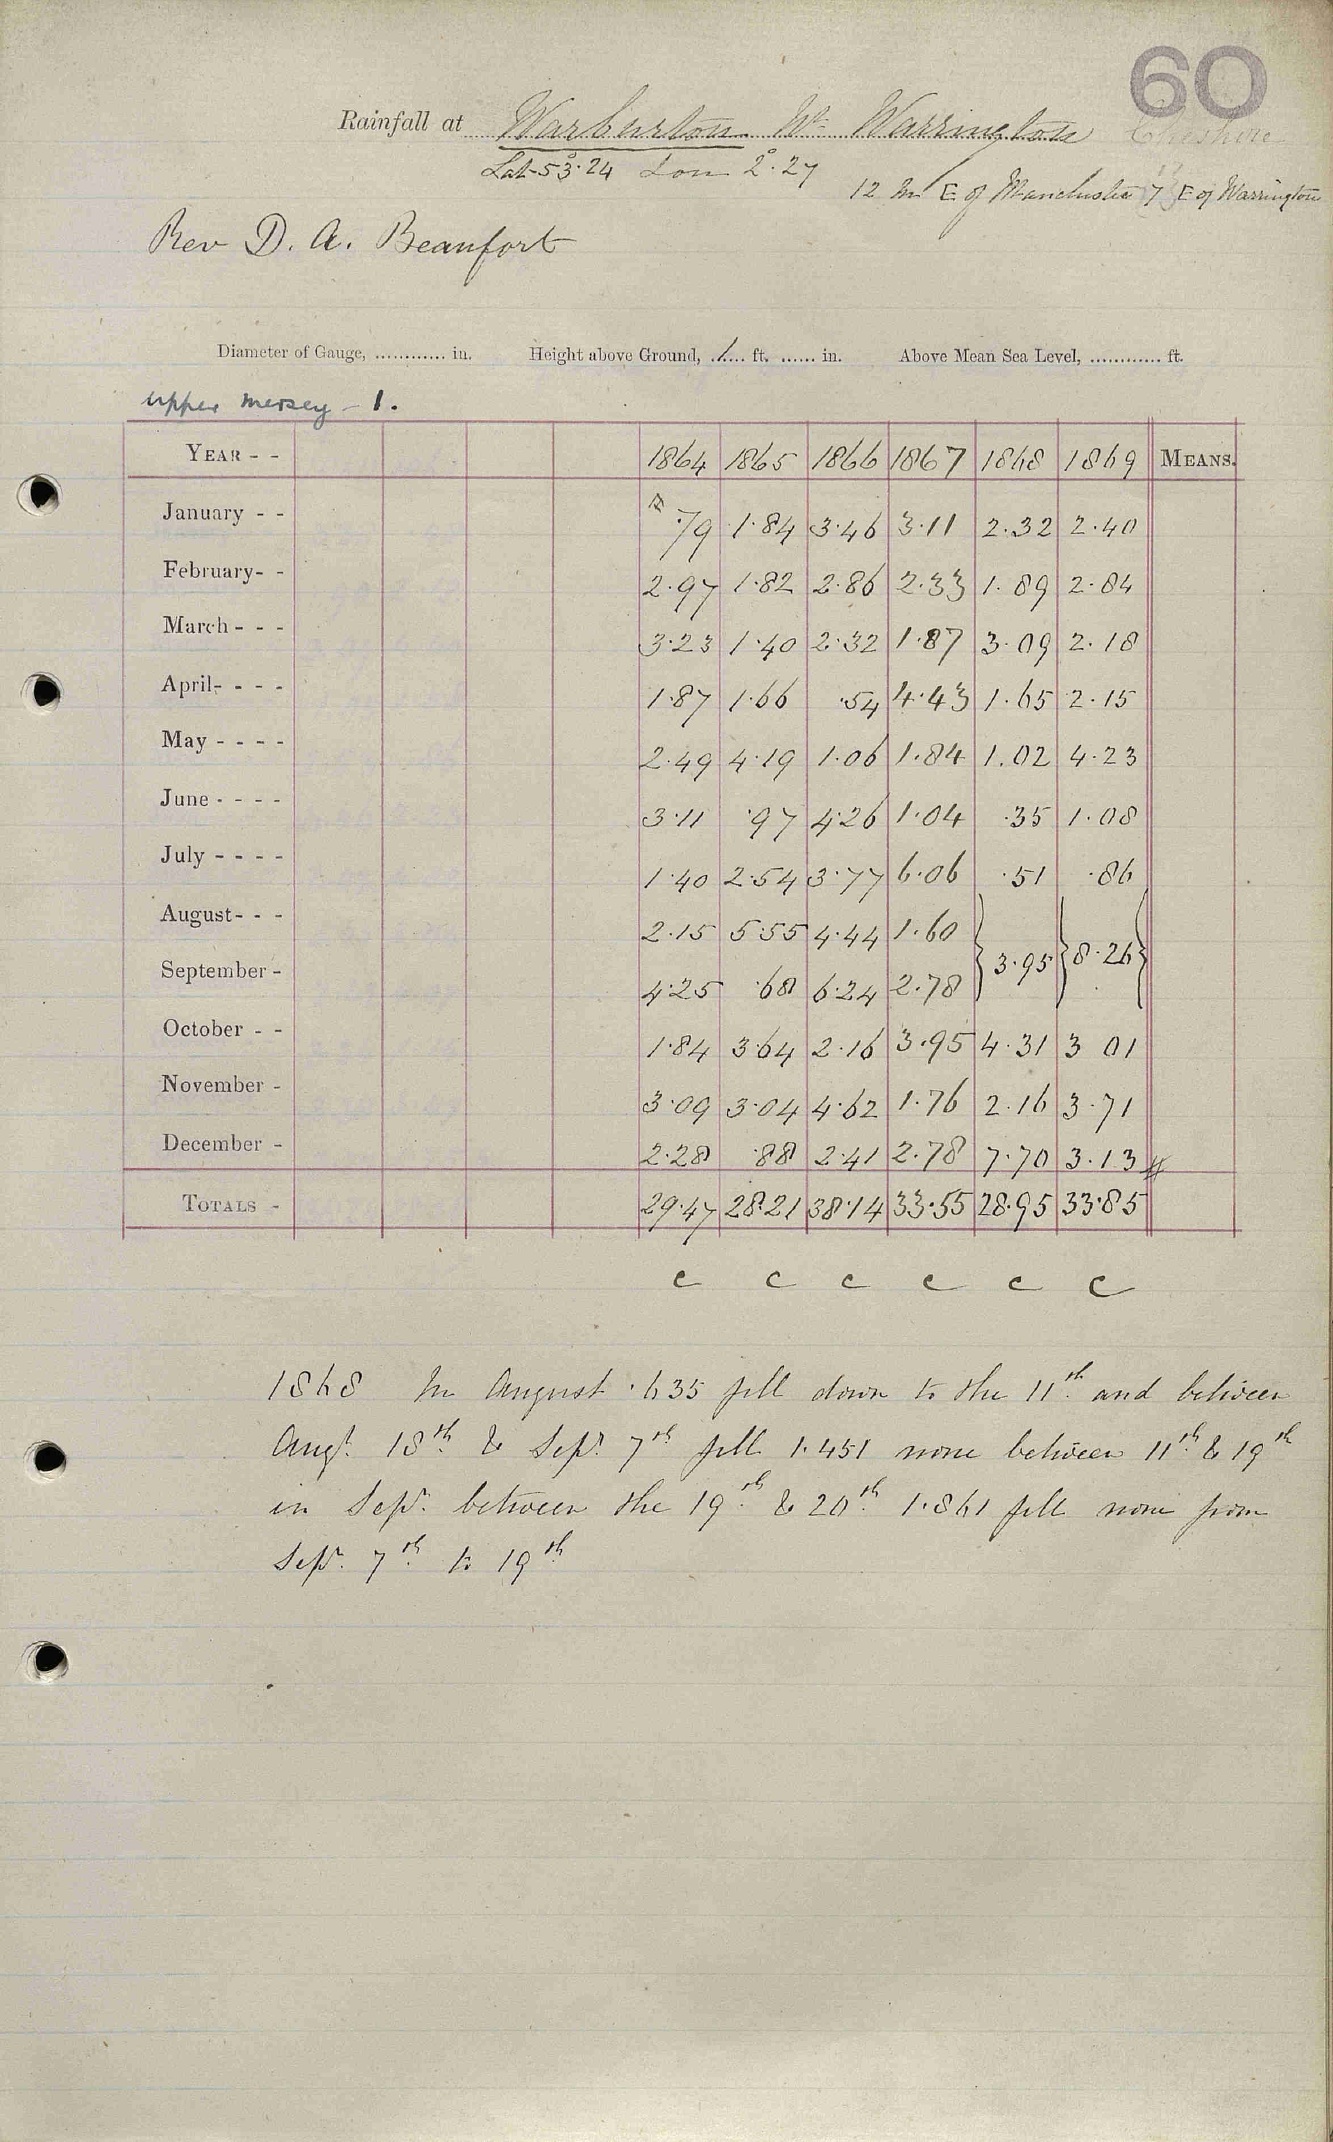 60
Rainfall at Warburton Nr Warrington Cheshire
Lat 53°.24 Lon 2°.27
12 M E of Manchester 7 E of Warrington
Rev D. A. Beaufort
Diameter of Gauge, ............ in. Height above Ground, ..1.... ft. ...... in. Above Mean Sea Level, ............ ft.
Upper Mersey - 1.
YEAR - - 1864 1865 1866 1867 1868 1869 MEANS.
January - - .79 1.84 3.46 3.11 2.32 2.40
February- - 2.97 1.82 2.86 2.33 1.89 2.84
March - - - 3.23 1.40 2.32 1.87 3.09 2.18
April- - - - 1.87 1.66 .54 4.43 1.65 2.15
May - - - - 2.49 4.19 1.06 1.84 1.02 4.23
June - - - - 3.11 .97 4.26 1.04 .35 1.08
July - - - - 1.40 2.54 3.77 6.06 .51 .86
August- - - 2.15 5.55 4.44 1.60 } 3.95 } 8.26 }
September - 4.25 .68 6.24 2.78
October - - 1.84 3.64 2.16 3.95 4.31 3 01
November - 3.09 3.04 4.62 1.76 2.16 3.71
December - 2.28 .88 2.41 2.78 7.70 3.13
TOTALS - 29.47 28.21 38.14 33.55 28.95 33.85
c c c c c c
1868 In August .635 fell down to the 11th and between
Augt. 18th & Sepr 7th fell 1.451 none between 11th & 19th
in Sepr. between the 19th & 20th 1.861 fell none from
Sepr. 7th to 19th